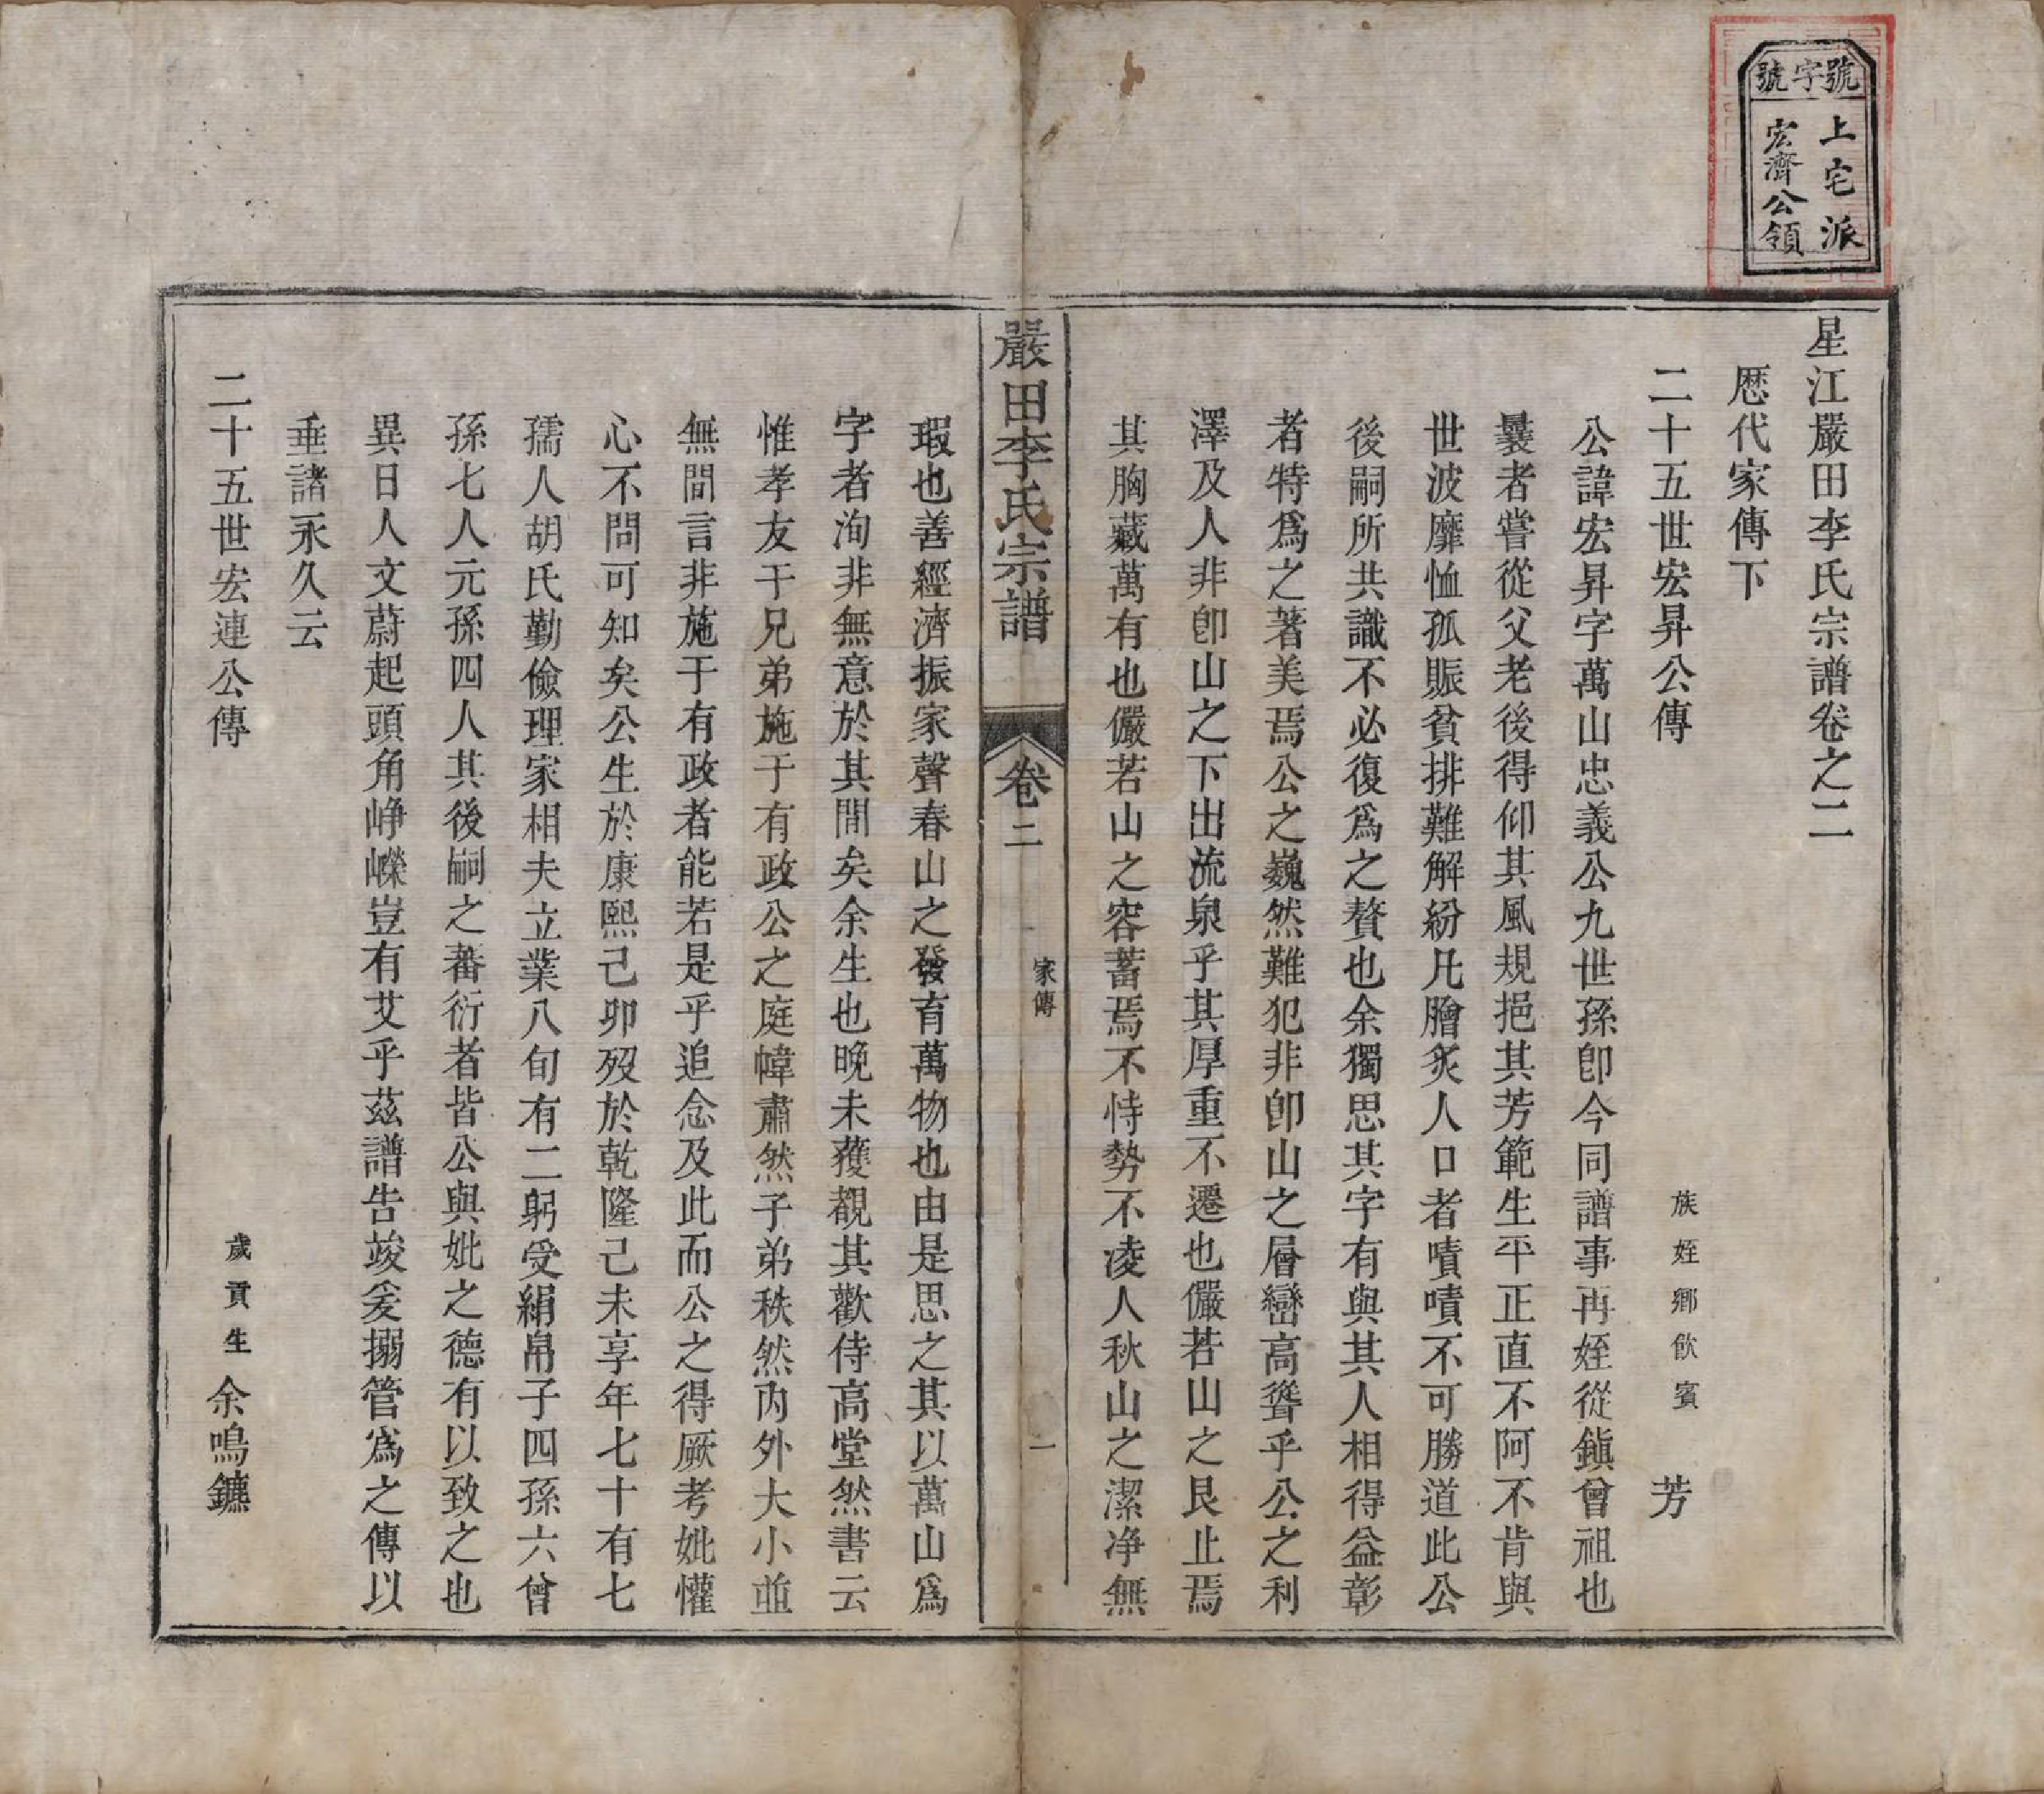 號字號
上宅派
宏濟公領
星江嚴田李氏宗譜卷之二
歷代家傳下
二十五世宏昇公傳　族姪鄉飲賓　芳
公諱宏昇字萬山忠義公九世孫卽今同譜事再姪從鎮曾祖也
曩者嘗從父老後得仰其風規挹其芳範生平正直不阿不肯與
世波靡恤孤賑貧排難解紛凡膾炙人口者嘖嘖不可勝道此公
後嗣所共識不必復爲之贅也余獨思其字有與其人相得益彰
者特爲之著美焉公之巍然難犯非卽山之層巒高聳乎公之利
澤及人非卽山之下出流泉乎其厚重不遷也儼若山之艮止焉
其胸藏萬有也儼若山之容蓄焉不恃勢不凌人秋山之潔淨無
嚴田李氏宗譜　卷二　家傳　一
瑕也善經濟振家聲春山之發育萬物也由是思之其以萬山爲
字者洵非無意於其間矣余生也晚未獲覩其歡侍高堂然書云
惟孝友于兄弟施于有政公之庭幃肅然子弟秩然內外大小並
無間言非施于有政者能若是乎追念及此而公之得厥考妣懽
心不問可知矣公生於康熙己卯歿於乾隆己未享年七十有七
孺人胡氏勤儉理家相夫立業八旬有二躬受絹帛子四孫六曾
孫七人元孫四人其後嗣之蕃衍者皆公與妣之德有以致之也
異日人文蔚起頭角崢嶸豈有艾乎茲譜告竣爰搦管爲之傳以
垂諸永久云
二十五世宏連公傳　歲貢生　余鳴鑣